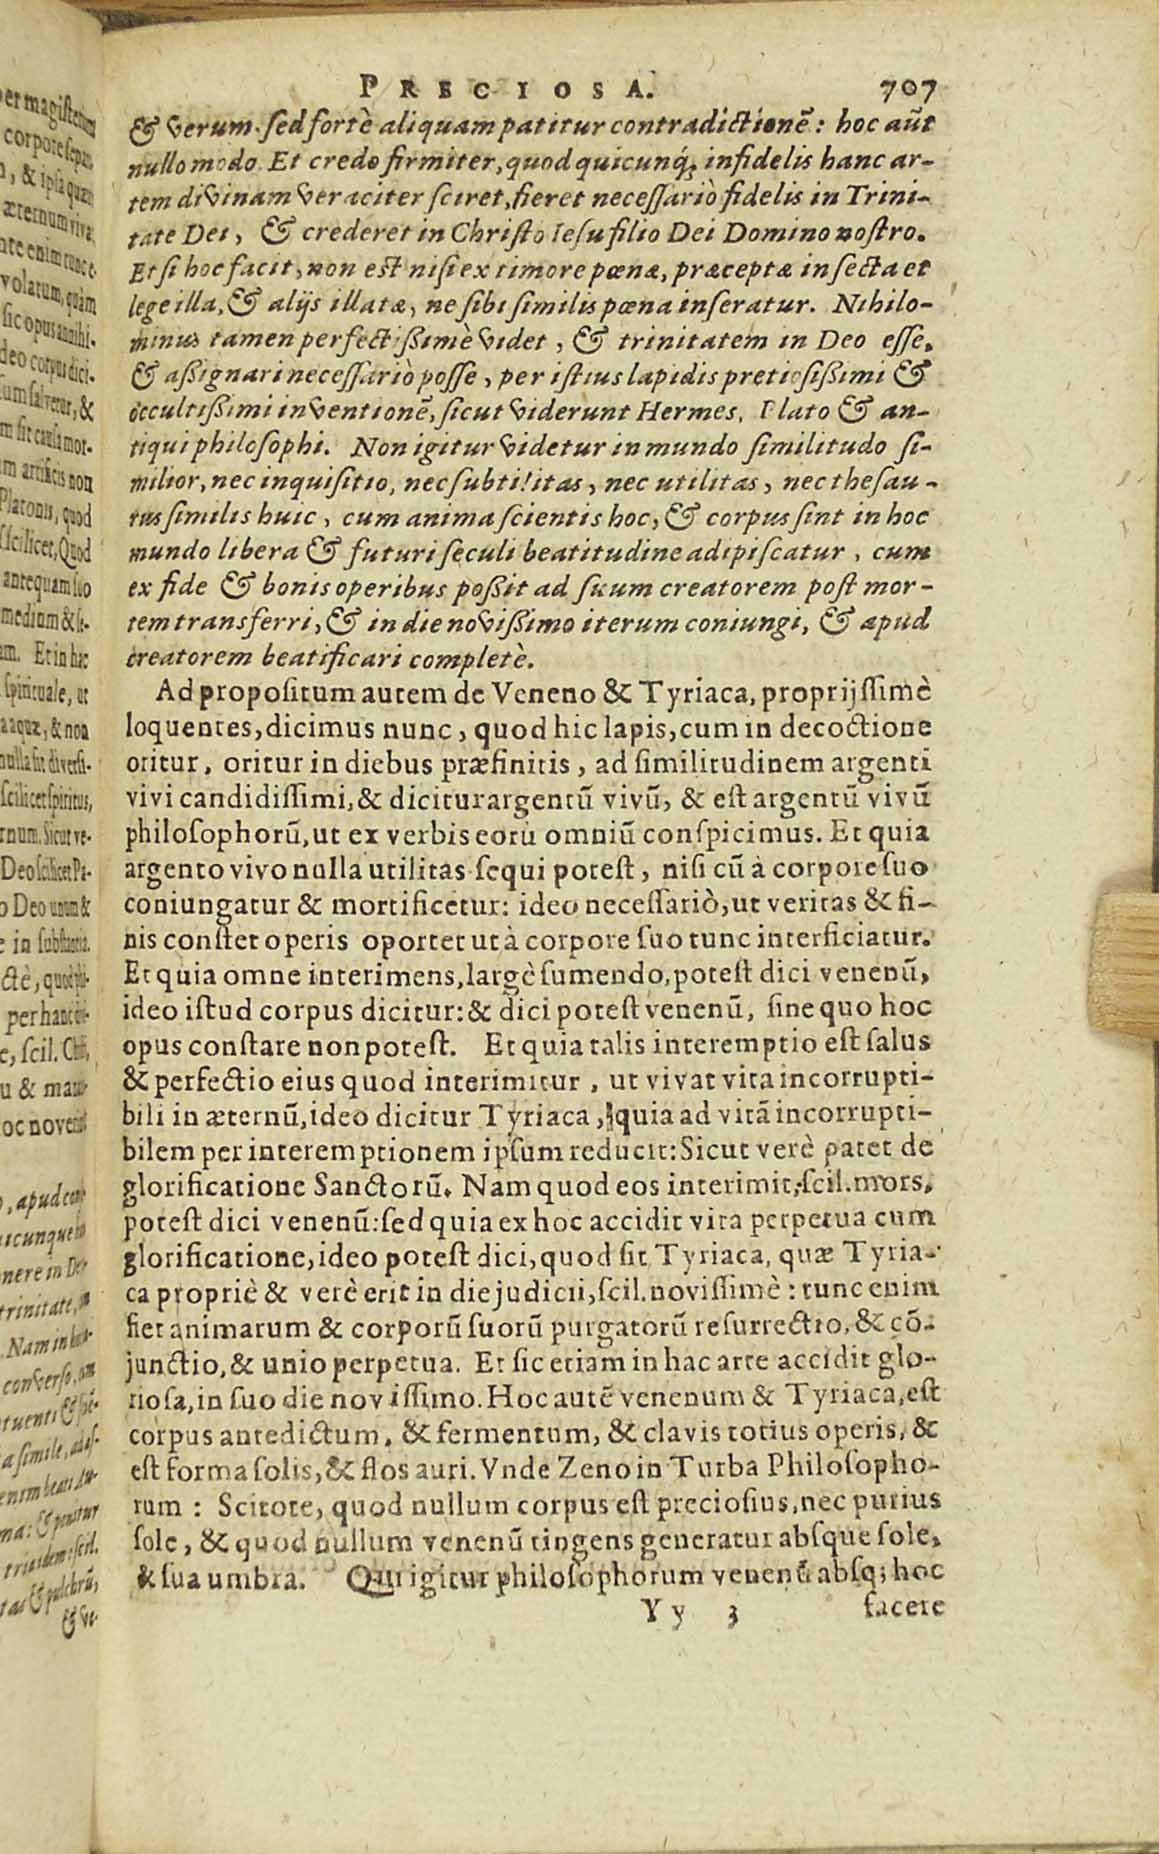 PRECIOSA. 707
& verum. sed fortè aliquam patitur contradictionẽ: hoc aũt
nullo modo. Et credo firmiter, quod quicunq́; infidelis hanc ar-
tem divinam veraciter sciret, fieret necessariò fidelis in Trini-
tate Dei, & crederet in Christo Iesu filio Dei Domino nostro.
Et si hoc facit, non est nisi ex timore pœnæ, præceptæ in secta et
lege illa, & alijs illatæ, ne sibi similis pœna inferatur. Nihilo-
minus tamen perfectißimè videt, & trinitatem in Deo esse,
& aßignari necessariò posse, per istius lapidis pretiosißimi &
occultißimi inventionẽ, sicut viderunt Hermes, Plato & an-
tiqui philosophi. Non igitur videtur in mundo similitudo si-
milior, nec inquisitio, nec subtilitas, nec utilitas, nec thesau-
rus similis huic, cum anima scientis hoc, & corpus sint in hoc
mundo libera & futuri seculi beatitudine adipiscatur, cum
ex fide & bonis operibus poßit ad suum creatorem post mor-
tem transferri, & in die novißimo iterum coniungi, & apud
creatorem beatificari completè.
Ad propositum autem de Veneno & Tyriaca, proprijssimè
loquentes, dicimus nunc, quod hic lapis, cum in decoctione
oritur, oritur in diebus præfinitis, ad similitudinem argenti
vivi candidissimi, & dicitur argentũ vivũ, & est argentũ vivũ
philosophorũ, ut ex verbis eorũ omniũ conspicimus. Et quia
argento vivo nulla utilitas sequi potest, nisi cũ à corpore suo
coniungatur & mortificetur: ideo necessariò, ut veritas & fi-
nis constet operis oportet ut à corpore suo tunc interficiatur.
Et quia omne interimens, largè sumendo, potest dici venenũ,
ideo istud corpus dicitur: & dici potest venenũ, sine quo hoc
opus constare non potest. Et quia talis interemptio est salus
& perfectio eius quod interimitur, ut vivat vita incorrupti-
bili in æternũ, ideo dicitur Tyriaca, quia ad vitã incorrupti-
bilem per interemptionem ipsum reducit: Sicut verè patet de
glorificatione Sanctorũ. Nam quod eos interimit, scil. mors,
potest dici venenũ: sed quia ex hoc accidit vita perpetua cum
glorificatione, ideo potest dici, quod sit Tyriaca, quæ Tyria-
ca propriè & verè erit in die judicii, scil. novissimè: tunc enim
fiet animarum & corporũ suorũ purgatorũ resurrectio, & cõ-
junctio, & unio perpetua. Et sic etiam in hac arte accidit glo-
riosa, in suo die novissimo. Hoc autẽ venenum & Tyriaca, est
corpus antedictum, & fermentum, & clavis totius operis, &
est forma solis, & flos auri. Vnde Zeno in Turba Philosopho-
rum: Scitote, quod nullum corpus est preciosius, nec purius
sole, & quod nullum venenũ tingens generatur absque sole,
& sua umbra. Qui igitur philosophorum venenũ absq; hoc
Yy 3 facere